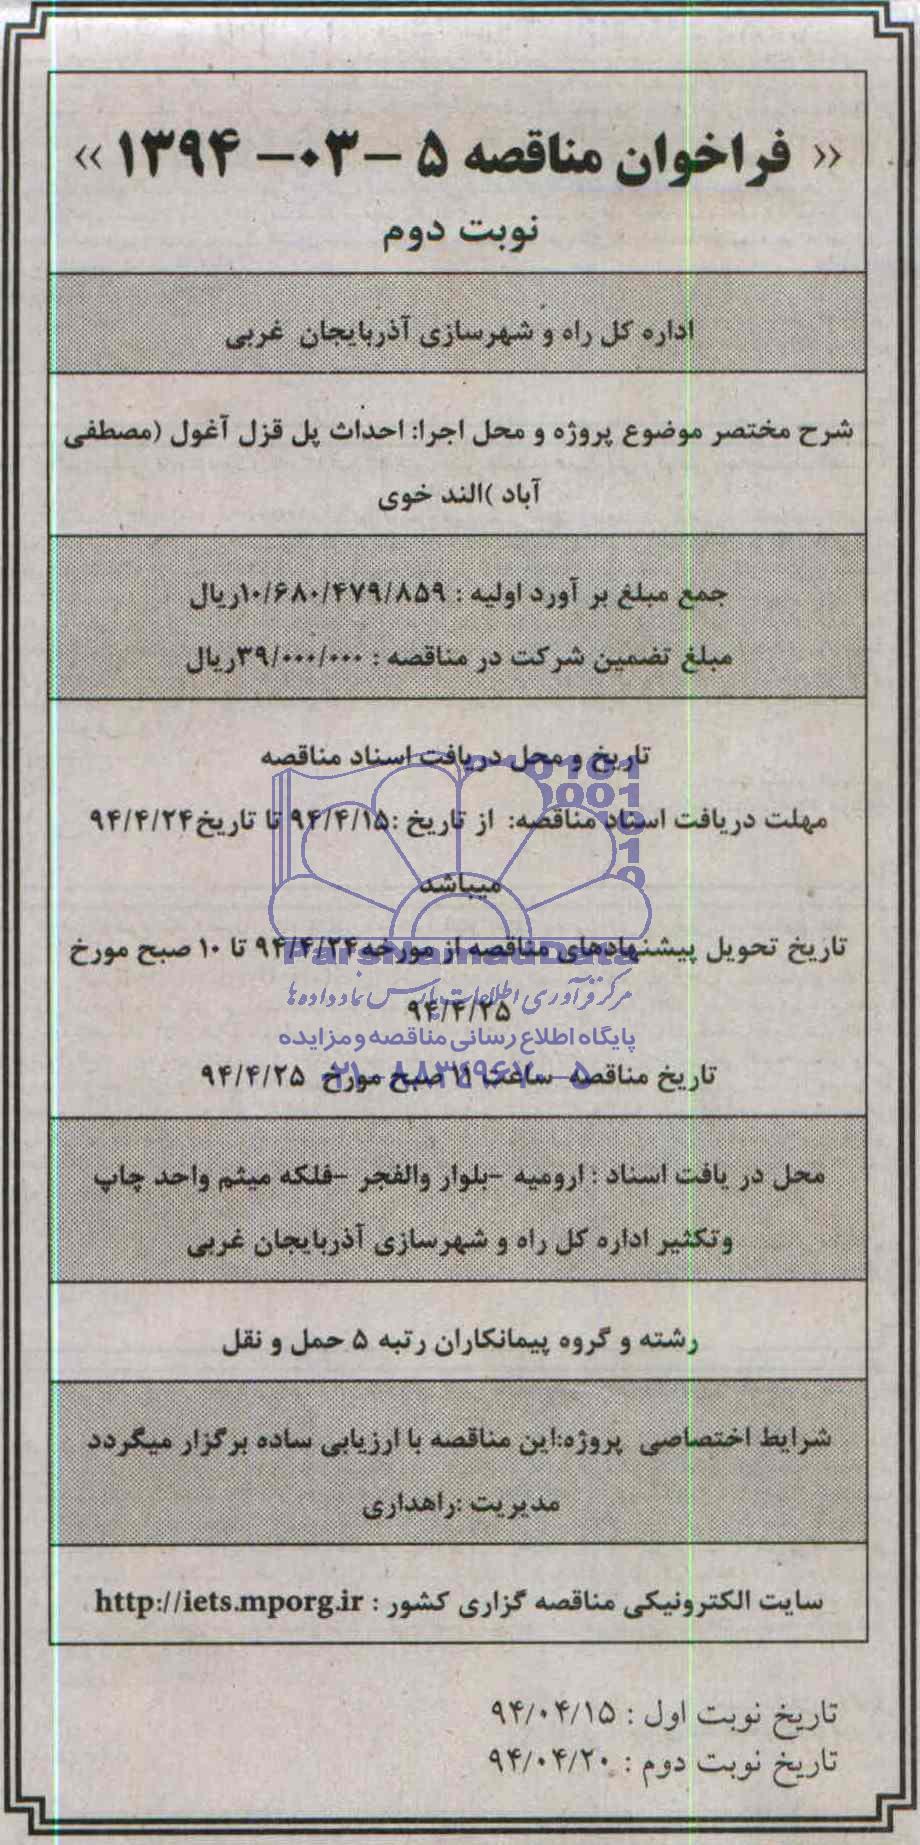 « فراخوان مناقصه ۵ -۰۳- ۱۳۹۴ »
نوبت دوم
اداره کل راه و شهرسازی آذربایجان غربی
شرح مختصر موضوع پروژه و محل اجرا: احداث پل قزل آغول (مصطفی
آباد )الند خوی
جمع مبلغ بر آورد اولیه : ۱۰/۶۸۰/۴۷۹/۸۵۹ریال
مبلغ تضمین شرکت در مناقصه : ۳۹/۰۰۰/۰۰۰ریال
تاریخ و محل دریافت اسناد مناقصه
مهلت دریافت اسناد مناقصه: از تاریخ :۹۴/۴/۱۵ تا تاریخ۹۴/۴/۲۴
میباشد
تاریخ تحویل پیشنهادهای مناقصه از مورخه۹۴/۴/۲۴ تا ۱۰ صبح مورخ
۹۴/۴/۲۵
تاریخ مناقصه ساعت ۱۱ صبح مورخ ۹۴/۴/۲۵
ParsNamadData
مرکز فرآوری اطلاعات پارس نماد داده ها
پایگاه اطلاع رسانی مناقصه و مزایده
۰۲۱-۸۸۳۴۹۶۷۰-۵
محل در یافت اسناد : ارومیه -بلوار والفجر -فلکه میثم واحد چاپ
وتکثیر اداره کل راه و شهرسازی آذربایجان غربی
رشته و گروه پیمانکاران رتبه ۵ حمل و نقل
شرایط اختصاصی پروژه:این مناقصه با ارزیابی ساده برگزار میگردد
مدیریت :راهداری
سایت الکترونیکی مناقصه گزاری کشور : http://iets.mporg.ir
تاریخ نوبت اول : ۹۴/۰۴/۱۵
تاریخ نوبت دوم : ۹۴/۰۴/۲۰